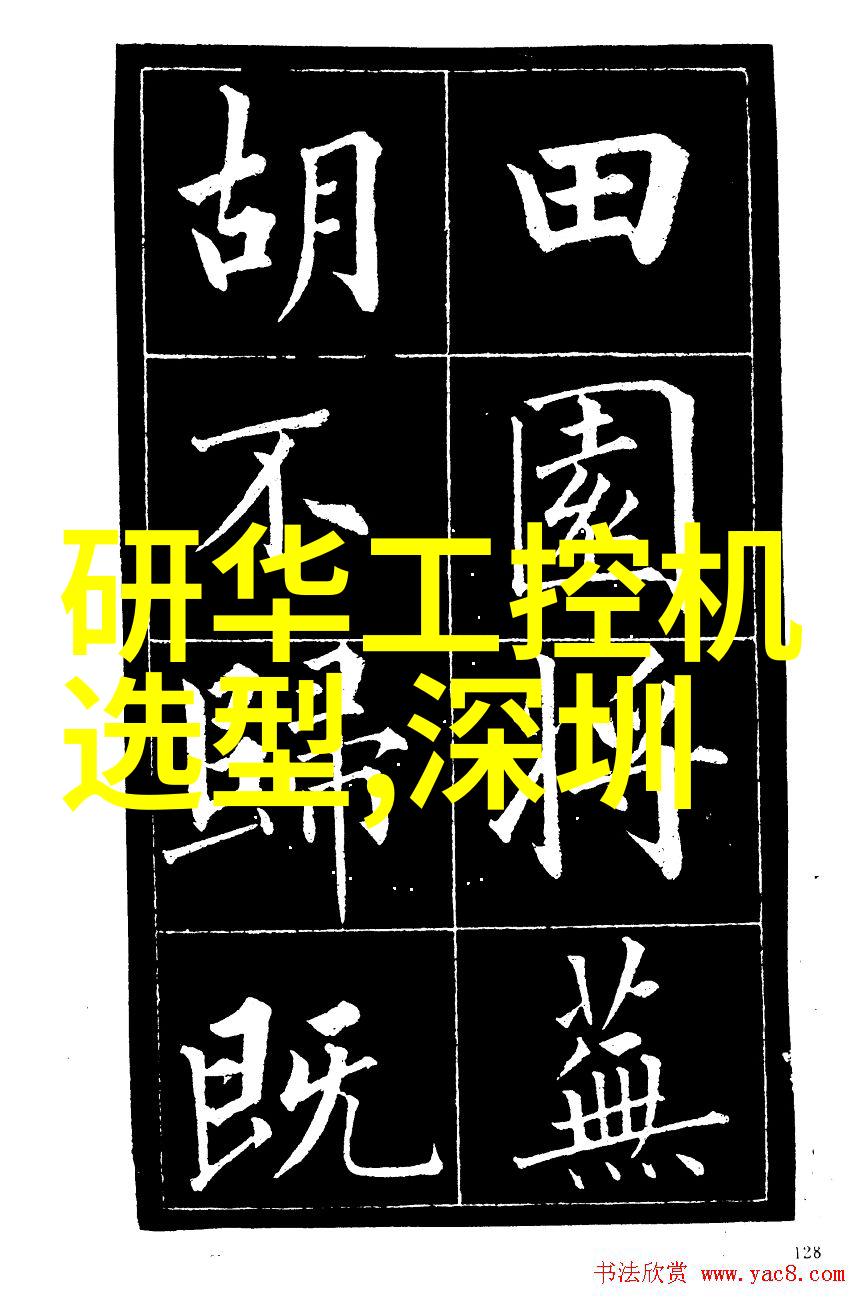 田園將蕪
胡不歸既
研华工控机
选型,深圳
128
书法欣赏 www.yac8.com